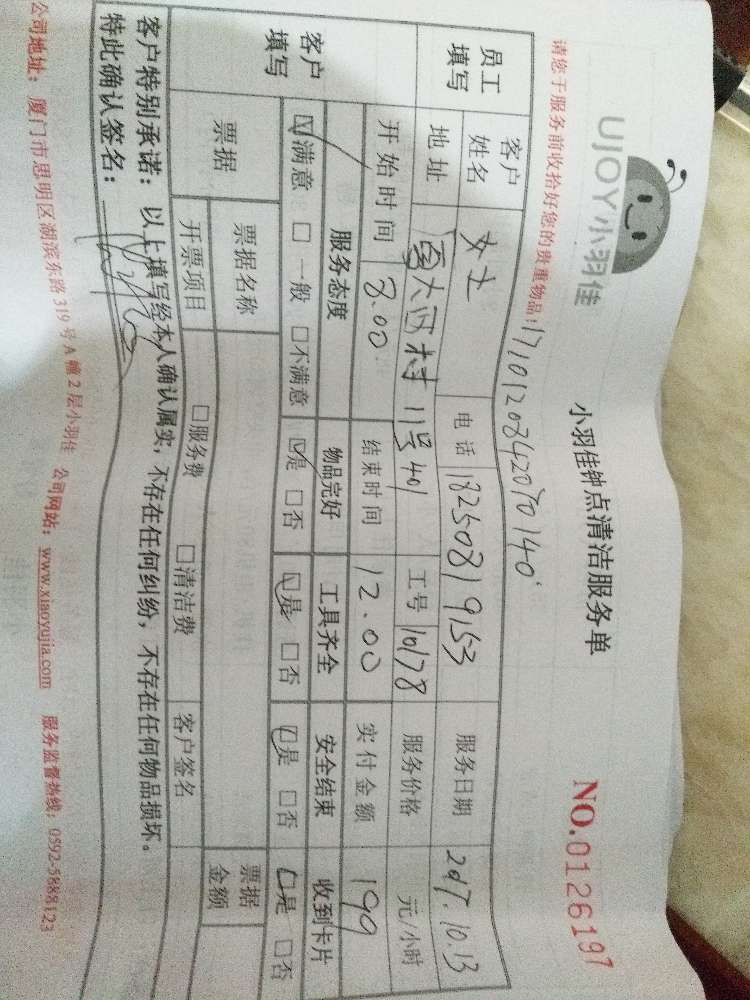 UJOY小羽佳
小羽佳钟点清洁服务单
NO.0126197
请您于服务前收拾好您的贵重物品!
员工填写
客户姓名 女士 电话 18250819153 服务日期 2017.10.13
地址 厦大西村11号401 工号 10178 服务价格 元/小时
开始时间 8.00 结束时间 12.00 实付金额 199
客户填写
服务态度 物品完好 工具齐全 安全结束 收到卡片
☑满意 □一般 □不满意 ☑是 □否 ☑是 □否 ☑是 □否 ☑是 □否
票据 票据名称 票据金额
开票项目 □服务费 □清洁费 客户签名
客户特别承诺：以上填写经本人确认属实，不存在任何纠纷，不存在任何物品损坏。
特此确认签名：
公司地址：厦门市思明区湖滨东路319号A幢2层小羽佳 公司网站：www.xiaoyujia.com 服务监督热线：0592-5888123